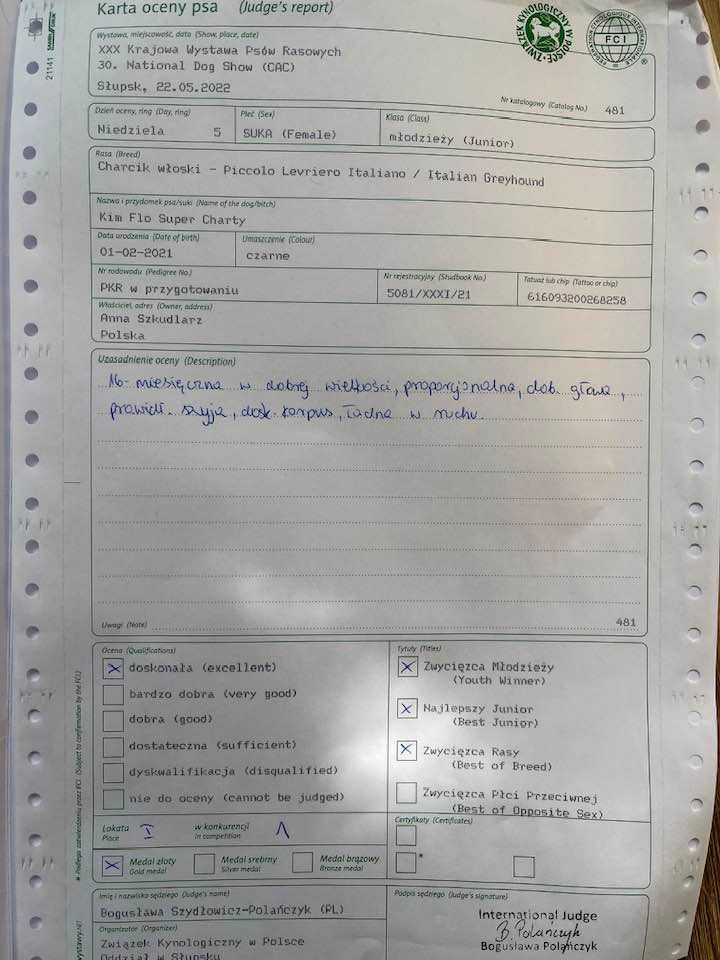 Karta oceny psa (Judge's report)
ZWIĄZEK KYNOLOGICZNY W POLSCE
FEDERATION CYNOLOGIQUE INTERNATIONALE
FCI
®
21141
Wystawa, miejscowość, data (Show, place, date)
XXX Krajowa Wystawa Psów Rasowych
30. National Dog Show (CAC)
Słupsk, 22.05.2022
Nr katalogowy (Catalog No.) 481
Dzień oceny, ring (Day, ring) Płeć (Sex) Klasa (Class)
Niedziela 5 SUKA (Female) młodzieży (Junior)
Rasa (Breed)
Charcik włoski - Piccolo Levriero Italiano / Italian Greyhound
Nazwa i przydomek psa/suki (Name of the dog/bitch)
Kim Flo Super Charty
Data urodzenia (Date of birth) Umaszczenie (Colour)
01-02-2021 czarne
Nr rodowodu (Pedigree No.) Nr rejestracyjny (Studbook No.) Tatuaż lub chip (Tattoo or chip)
PKR w przygotowaniu 5081/XXXI/21 616093200268258
Właściciel, adres (Owner, address)
Anna Szkudlarz
Polska
Uzasadnienie oceny (Description)
16-miesięczna w dobrej wielkości, proporcjonalna, dob. głowa,
prawidł. szyja, dosk. korpus, ładna w ruchu.
Uwagi (Note) 481
Ocena (Qualifications) Tytuły (Titles)
doskonała (excellent)
bardzo dobra (very good)
dobra (good)
dostateczna (sufficient)
dyskwalifikacja (disqualified)
nie do oceny (cannot be judged)
Zwycięzca Młodzieży
(Youth Winner)
Najlepszy Junior
(Best Junior)
Zwycięzca Rasy
(Best of Breed)
Zwycięzca Płci Przeciwnej
(Best of Opposite Sex)
Lokata I w konkurencji 1
Place in competition
Certyfikaty (Certificates)
*
Medal złoty Medal srebrny Medal brązowy
Gold medal Silver medal Bronze medal
* Podlega zatwierdzeniu przez FCI. (Subject to confirmation by the FCI.)
Imię i nazwisko sędziego (Judge's name) Podpis sędziego (Judge's signature)
Bogusława Szydłowicz-Polańczyk (PL)
International Judge
B. Polańczyk
Bogusława Polańczyk
Organizator (Organizer)
Związek Kynologiczny w Polsce
Oddział w Słupsku